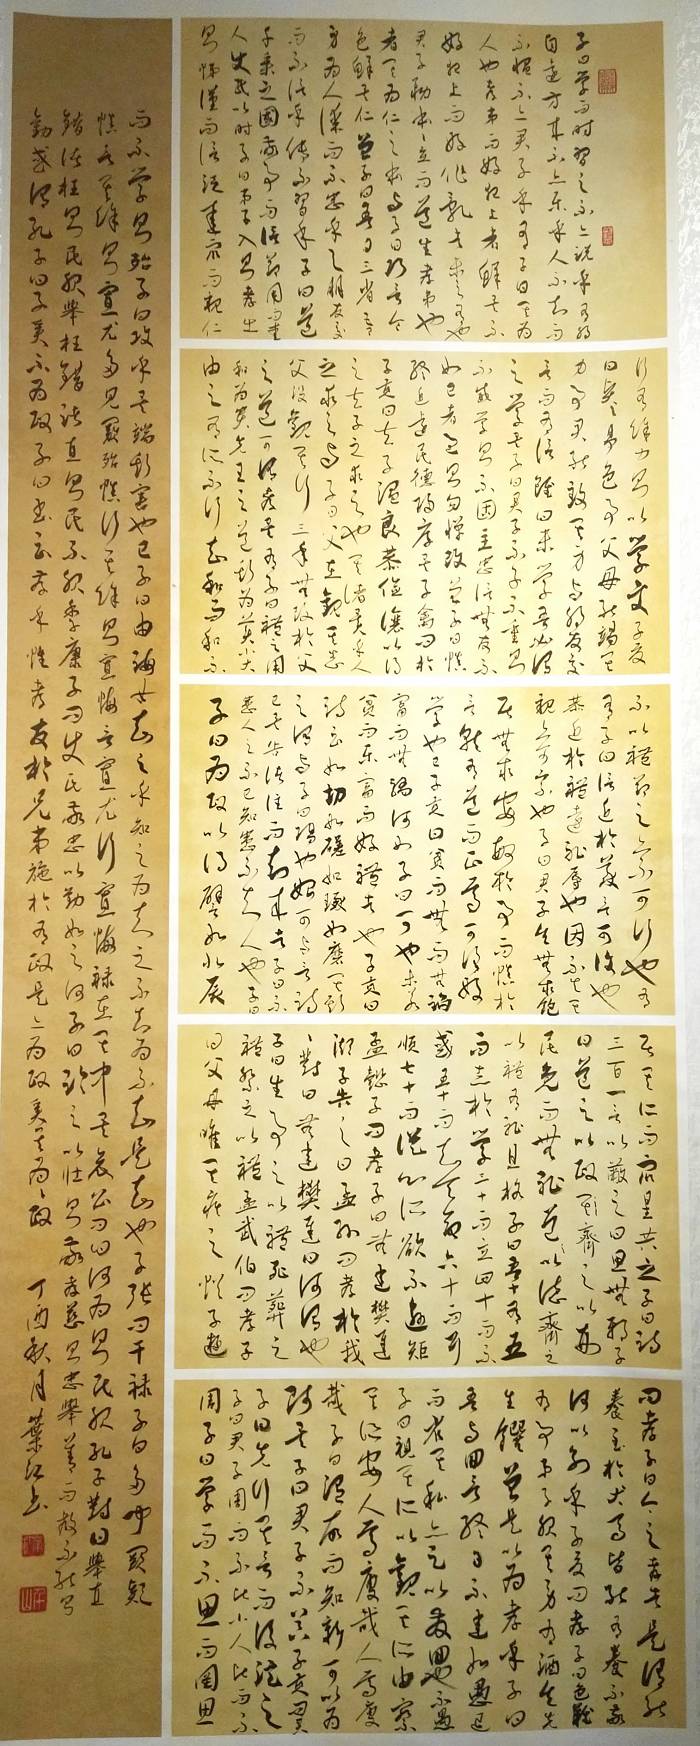 子曰學而時習之不亦說乎有朋
自遠方來不亦樂乎人不知而
不慍不亦君子乎有子曰其為
人也孝弟而好犯上者鮮矣不
好犯上而好作亂者未之有也
君子務本本立而道生孝弟也
者其為仁之本與子曰巧言令
色鮮矣仁曾子曰吾日三省吾
身為人謀而不忠乎與朋友交
而不信乎傳不習乎子曰道
千乘之國敬事而信節用而愛
人使民以時子曰弟子入則孝出
則悌謹而信泛愛眾而親仁
行有餘力則以學文子夏
曰賢賢易色事父母能竭其
力事君能致其身與朋友交
言而有信雖曰未學吾必謂
之學矣子曰君子不重則
不威學則不固主忠信無友不
如己者過則勿憚改曾子曰慎
終追遠民德歸厚矣子禽問於
子貢曰夫子溫良恭儉讓以得
之夫子之求之也其諸異乎人
之求之與子曰父在觀其志
父沒觀其行三年無改於父
之道可謂孝矣有子曰禮之用
和為貴先王之道斯為美小大
由之有所不行知和而和不
不以禮節之亦不可行也
有子曰信近於義言可復也
恭近於禮遠恥辱也因不失其
親亦可宗也子曰君子食無求飽
居無求安敏於事而慎於
言就有道而正焉可謂好
學也已子貢曰貧而無諂
富而無驕何如子曰可也未若
貧而樂富而好禮者也子貢曰
詩云如切如磋如琢如磨其斯
之謂與子曰賜也始可與言詩
已矣告諸往而知來者子曰不
患人之不己知患不知人也子曰
子曰為政以德譬如北辰
居其所而眾星共之子曰詩
三百一言以蔽之曰思無邪子
曰道之以政齊之以刑
民免而無恥道以德齊之
以禮有恥且格子曰吾十有五
而志於學三十而立四十而不
惑五十而知天命六十而耳
順七十而從心所欲不逾矩
孟懿子問孝子曰無違樊遲
御子告之曰孟孫問孝於我
對曰無違樊遲曰何謂也
子曰生事之以禮死葬之
禮祭之以禮孟武伯問孝子
曰父母唯其疾之憂子遊
問孝子曰今之孝者是謂能
養至於犬馬皆能有養不敬
何以別乎子夏問孝子曰色難
有事弟子服其勞有酒食先
生饌曾是以為孝乎子曰
吾與回言終日不違如愚退
而省其私亦足以發回也不愚
子曰視其所以觀其所由察
其所安人焉廋哉人焉廋
哉子曰溫故而知新可以為
師矣子曰君子不器子貢問
子曰先行其言而後從之
子曰君子周而不比小人比而不
周子曰學而不思而罔思
而不學則殆子曰攻乎異端斯害也已子曰由誨女知之乎知之為知之不知為不知是知也子張問干祿子曰多聞闕疑
慎言其餘則寡尤多見闕殆慎行其餘則寡悔言寡尤行寡悔祿在其中矣哀公問曰何為則民服孔子對曰舉直
錯諸枉則民服舉枉錯諸直則民不服季康子問使民敬忠以勸如之何子曰臨之以莊則敬孝慈則忠舉善而教不能則
勸或謂孔子曰子奚不為政子曰書云孝乎惟孝友於兄弟施於有政是亦為政奚其為為政 丁酉秋月葉紅書